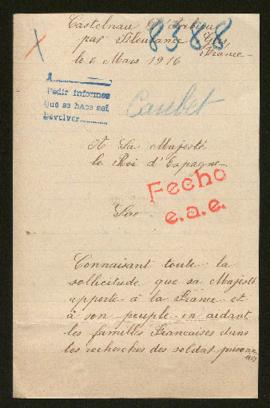 Castelnau
par Fleurance Gers
France
le 6 Mars 1916
8388
Pedir informes
que se hace set
Devolver
Caubet
A Sa Majesté
le Roi d'Espagne
Fecho
e.a.e.
Sire
Connaissant toute la
sollicitude que sa Majesté
apporte à la France et
à son peuple en aidant
les familles Françaises dans
les recherches des soldats